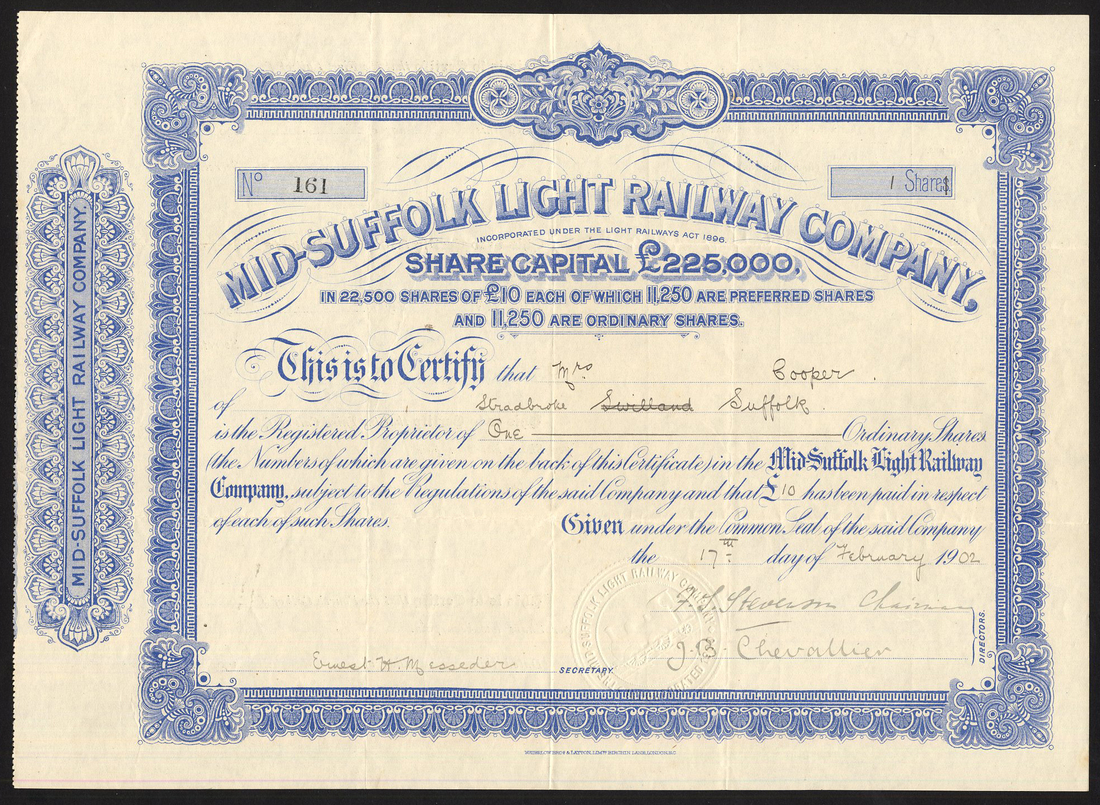 Nº 161
1 Shares
MID-SUFFOLK LIGHT RAILWAY COMPANY,
INCORPORATED UNDER THE LIGHT RAILWAYS ACT 1896.
SHARE CAPITAL £225,000.
IN 22,500 SHARES OF £10 EACH OF WHICH 11,250 ARE PREFERRED SHARES
AND 11,250 ARE ORDINARY SHARES.
This is to Certify that Mrs Cooper.
of Stradbroke Swilland Suffolk.
is the Registered Proprietor of One Ordinary Shares
(the Numbers of which are given on the back of this Certificate) in the Mid-Suffolk Light Railway
Company, subject to the Regulations of the said Company and that £10 has been paid in respect
of each of such Shares.
Given under the Common Seal of the said Company
the 17th day of February 1902
F. S. Stevenson Chairman
J. B. Chevallier
DIRECTORS.
Ernest H Messeder
SECRETARY.
MID-SUFFOLK LIGHT RAILWAY COMPANY.